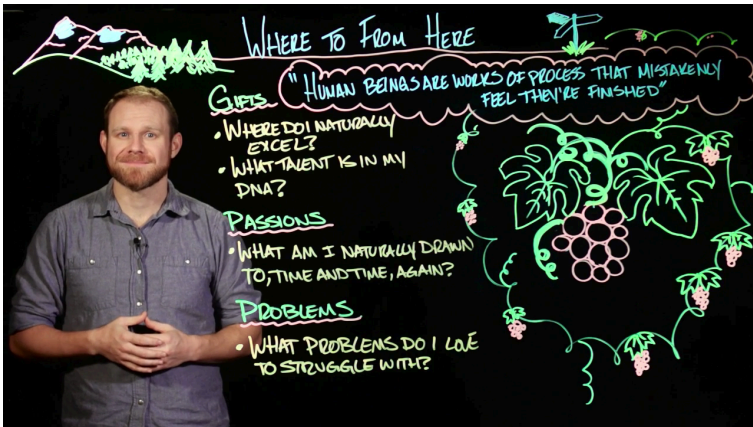 WHERE TO FROM HERE
"HUMAN BEINGS ARE WORKS OF PROCESS THAT MISTAKENLY
FEEL THEY'RE FINISHED"
GIFTS
• WHERE DO I NATURALLY
EXCEL?
• WHAT TALENT IS IN MY
DNA?
PASSIONS
• WHAT AM I NATURALLY DRAWN
TO, TIME AND TIME, AGAIN?
PROBLEMS
• WHAT PROBLEMS DO I LOVE
TO STRUGGLE WITH?